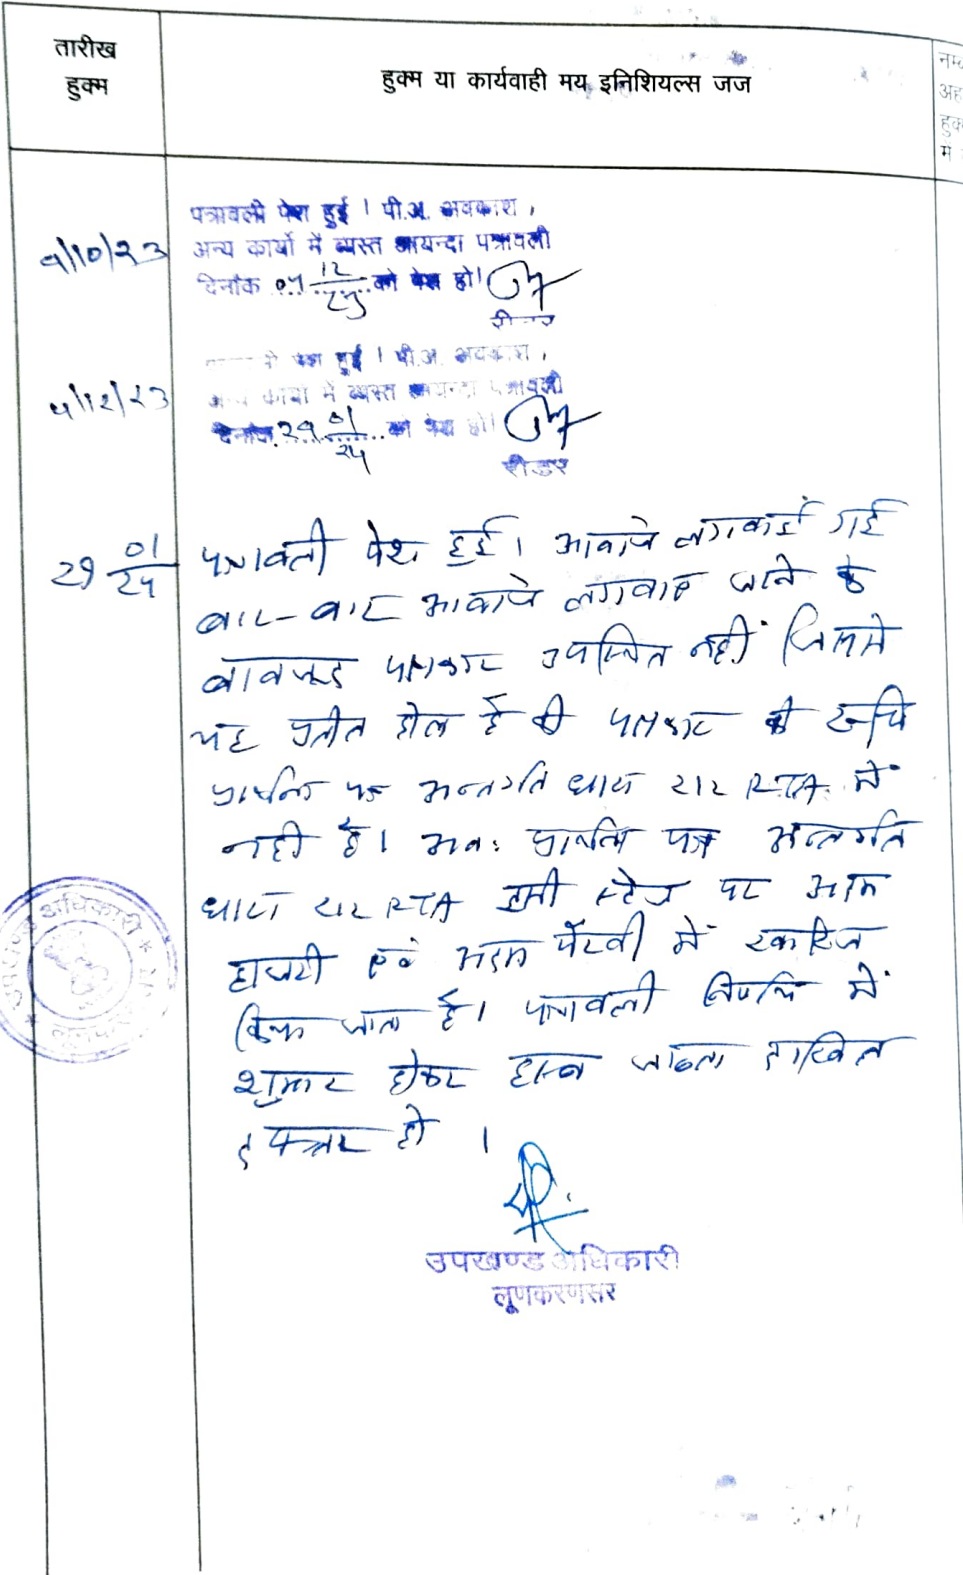 तारीख
हुक्म
हुक्म या कार्यवाही मय इनिशियल्स जज
नम्ब
अह
हुक
म
पत्रावली पेश हुई । पी.अ. अवकाश,
9/10/23 अन्य कार्यो में व्यस्त आयन्दा पत्रावली
दिनांक 04 12/23 को पेश हो।
रीडर
पेश हुई । पी.अ. अवकाश,
4/12/23 अन्य कार्यो में व्यस्त आयन्दा पत्रावली
दिनांक 29 01/24 को पेश हो।
रीडर
29 01/24 पत्रावली पेश हुई। आवाजे लगवाई गई
बार-बार आवाजे लगवाए जाने के
बावजूद पक्षकार उपस्थित नहीं जिससे
यह प्रतीत होता है की पक्षकार की रूचि
प्रार्थना पत्र अन्तर्गत धारा 212 RTA में
नही है। अतः प्रार्थना पत्र अन्तर्गत
धारा 212 RTA इसी स्टेज पर अदम
हाजरी एवं अदम पैरवी में खारिज
किया जाता है। पत्रावली निर्णय में
शुमार होकर हस्ब जाब्ता दाखिल
दफ्तर हो ।
उपखण्ड अधिकारी
लूणकरणसर
उपखण्ड अधिकारी